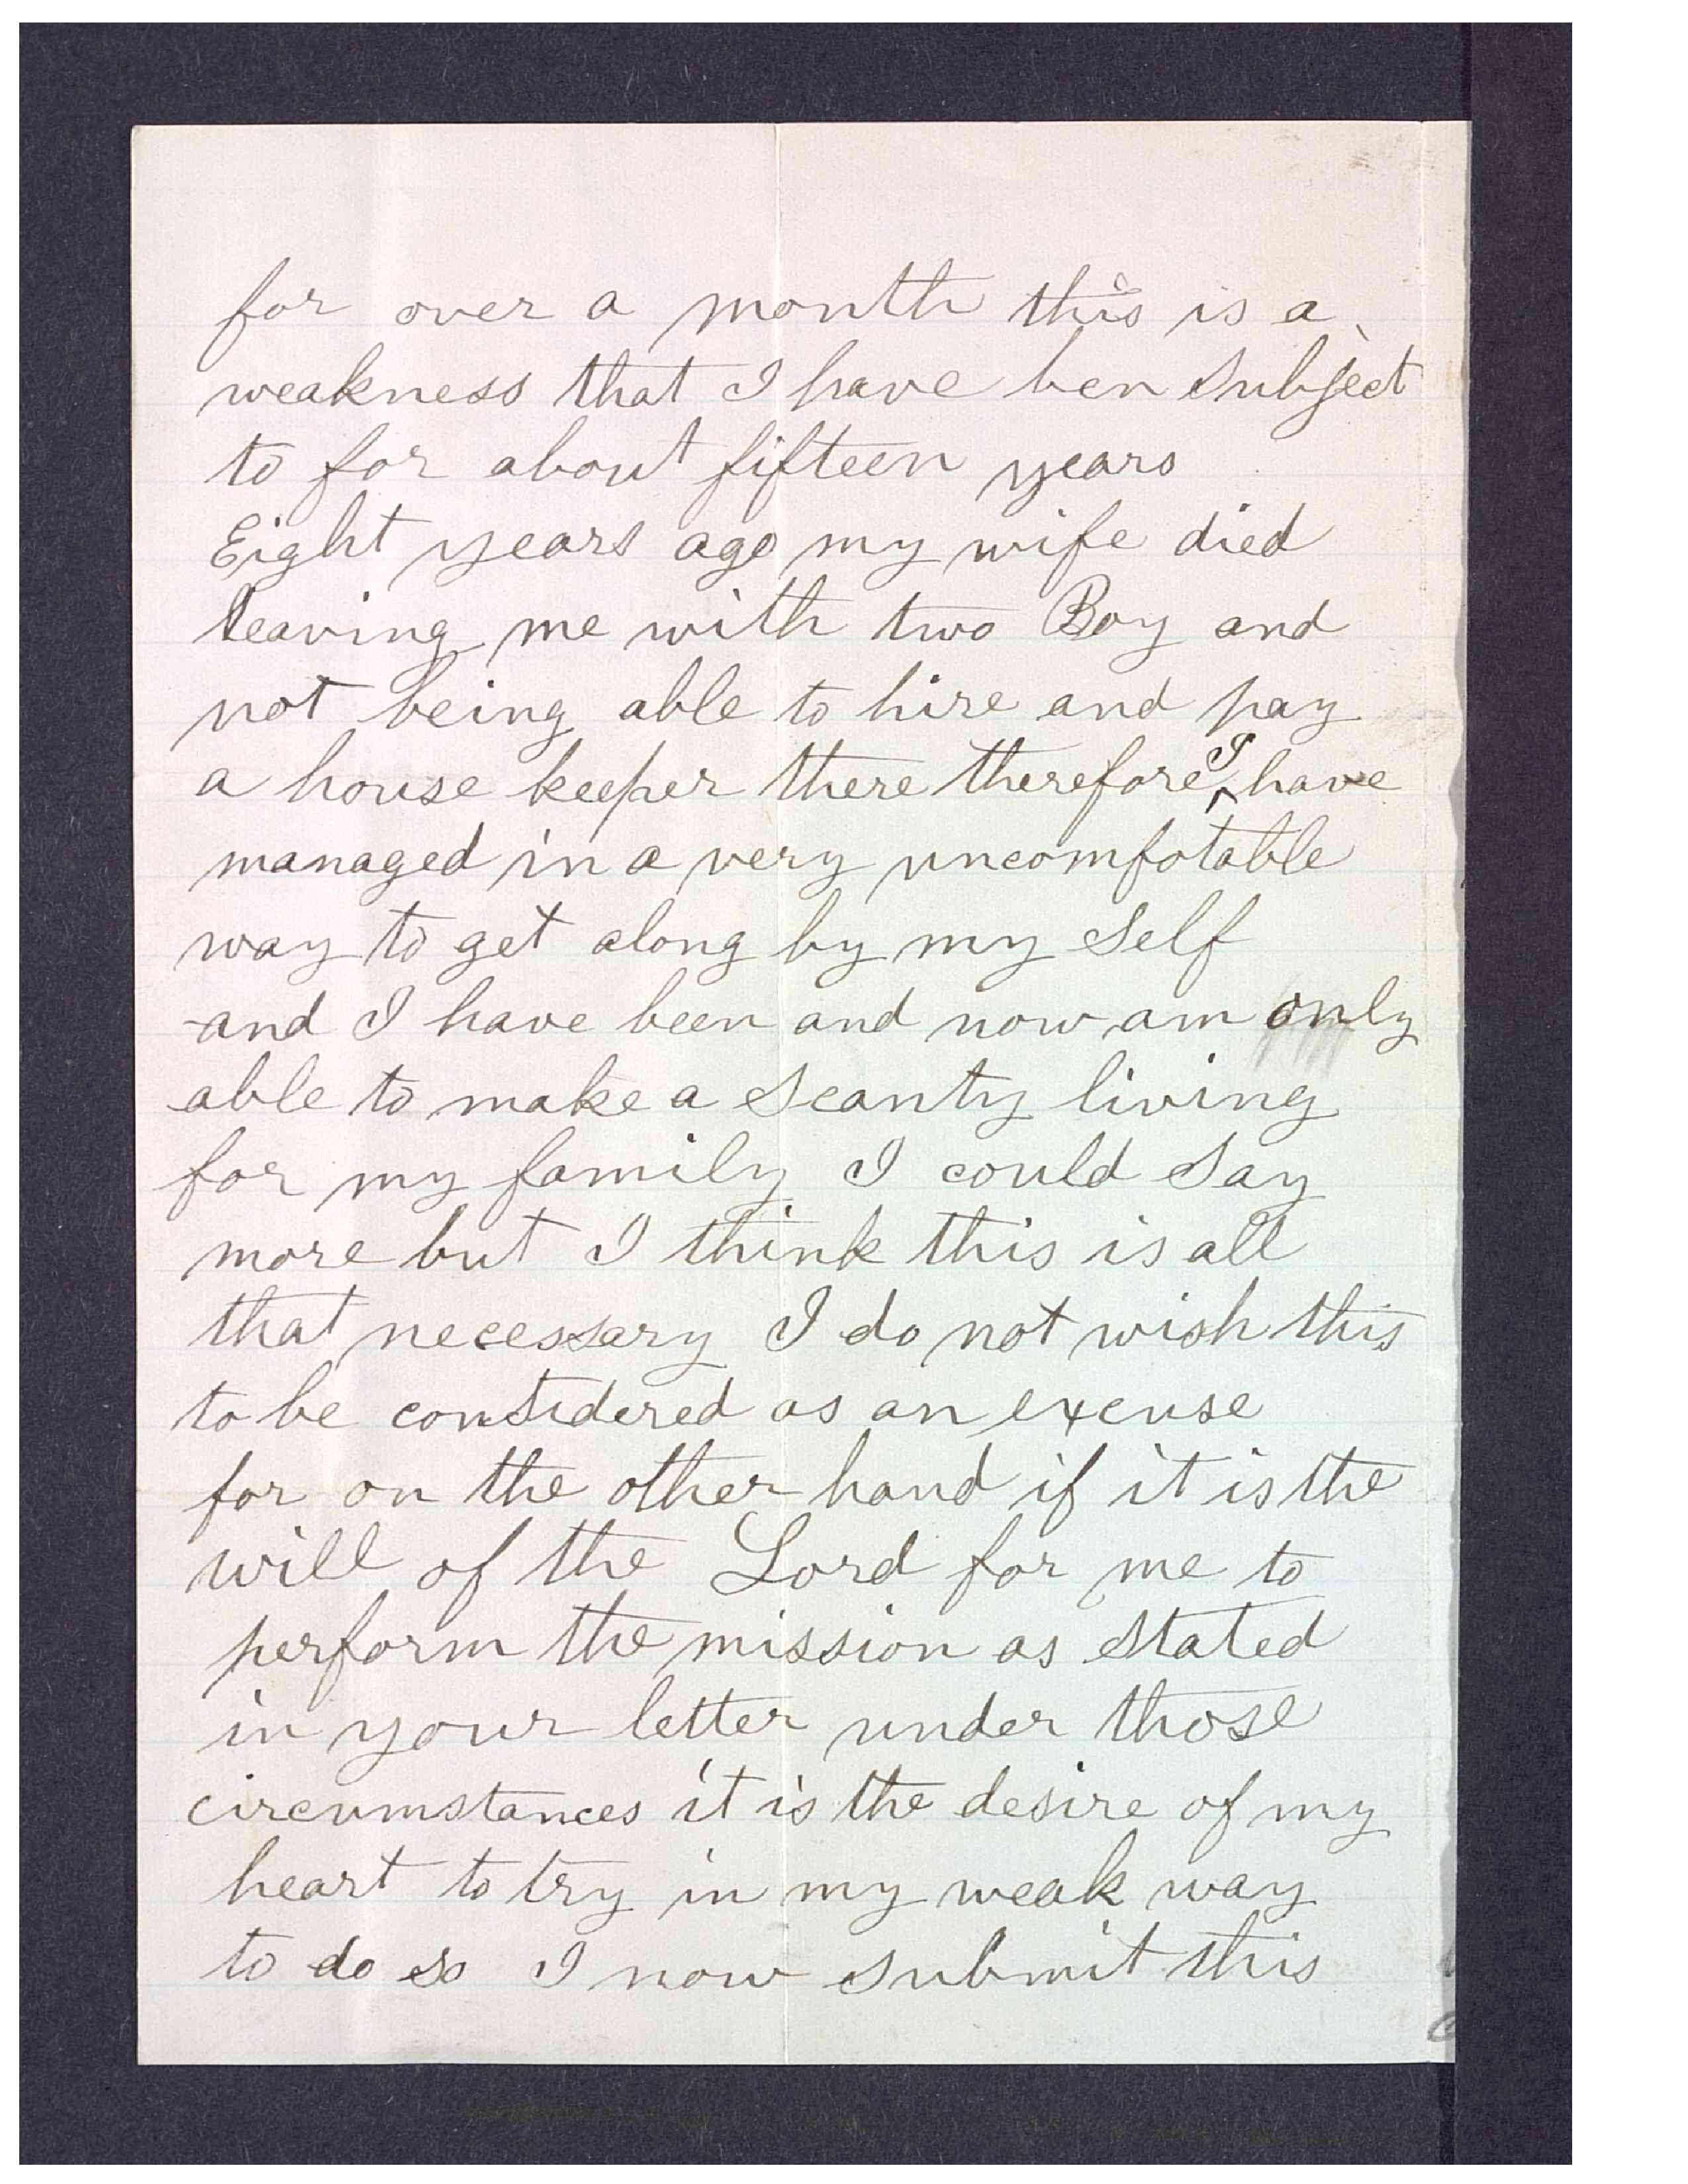 for over a month this is a
weakness that I have ben subject
to for about fifteen years
Eight years ago my wife died
leaving me with two Boy and
not being able to hire and pay
a house keeper there therefore I have
managed in a very uncomfotable
way to get along by my self
and I have been and now am only
able to make a scanty living
for my family I could say
more but I think this is all
that necessary I do not wish this
to be considered as an excuse
for on the other hand if it is the
will of the Lord for me to
perform the mission as stated
in your letter under those
circumstances it is the desire of my
heart to try in my weak way
to do so I now submit this